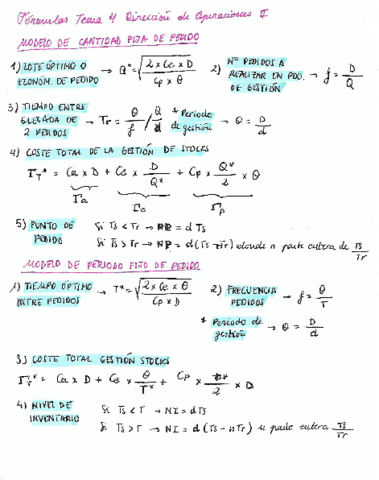 Fórmulas Tema 4 Dirección de Operaciones I
MODELO DE CANTIDAD FIJA DE PEDIDO
1) LOTE ÓPTIMO O ECONÓM. DE PEDIDO → Q* = √(2 x Ce x D / Cp x θ)
2) Nº PEDIDOS A REALIZAR EN PDO. DE GESTIÓN → f = D/Q
3) TIEMPO ENTRE LLEGADA DE 2 PEDIDOS → Tr = θ/f / Q/d
* Periodo de gestión → θ = D/d
4) COSTE TOTAL DE LA GESTIÓN DE STOCKS
ΓT* = Ca x D + Ce x D/Q* + Cp x Q*/2 x θ
Γa Γe Γp
5) PUNTO DE PEDIDO
Si Ts < Tr → PP = d Ts
Si Ts > Tr → PP = d (Ts - nTr) donde n parte entera de Ts/Tr
MODELO DE PERIODO FIJO DE PEDIDO
1) TIEMPO ÓPTIMO ENTRE PEDIDOS → T* = √(2 x Ce x θ / Cp x D)
2) FRECUENCIA PEDIDOS → f = θ/T
* Periodo de gestión → θ = D/d
3) COSTE TOTAL GESTIÓN STOCKS
ΓT* = Ca x D + Ce x θ/T* + Cp x T*/2 x D
4) NIVEL DE INVENTARIO
Si Ts < T → NI = dTs
Si Ts > T → NI = d (Ts - nTr) n parte entera Ts/Tr